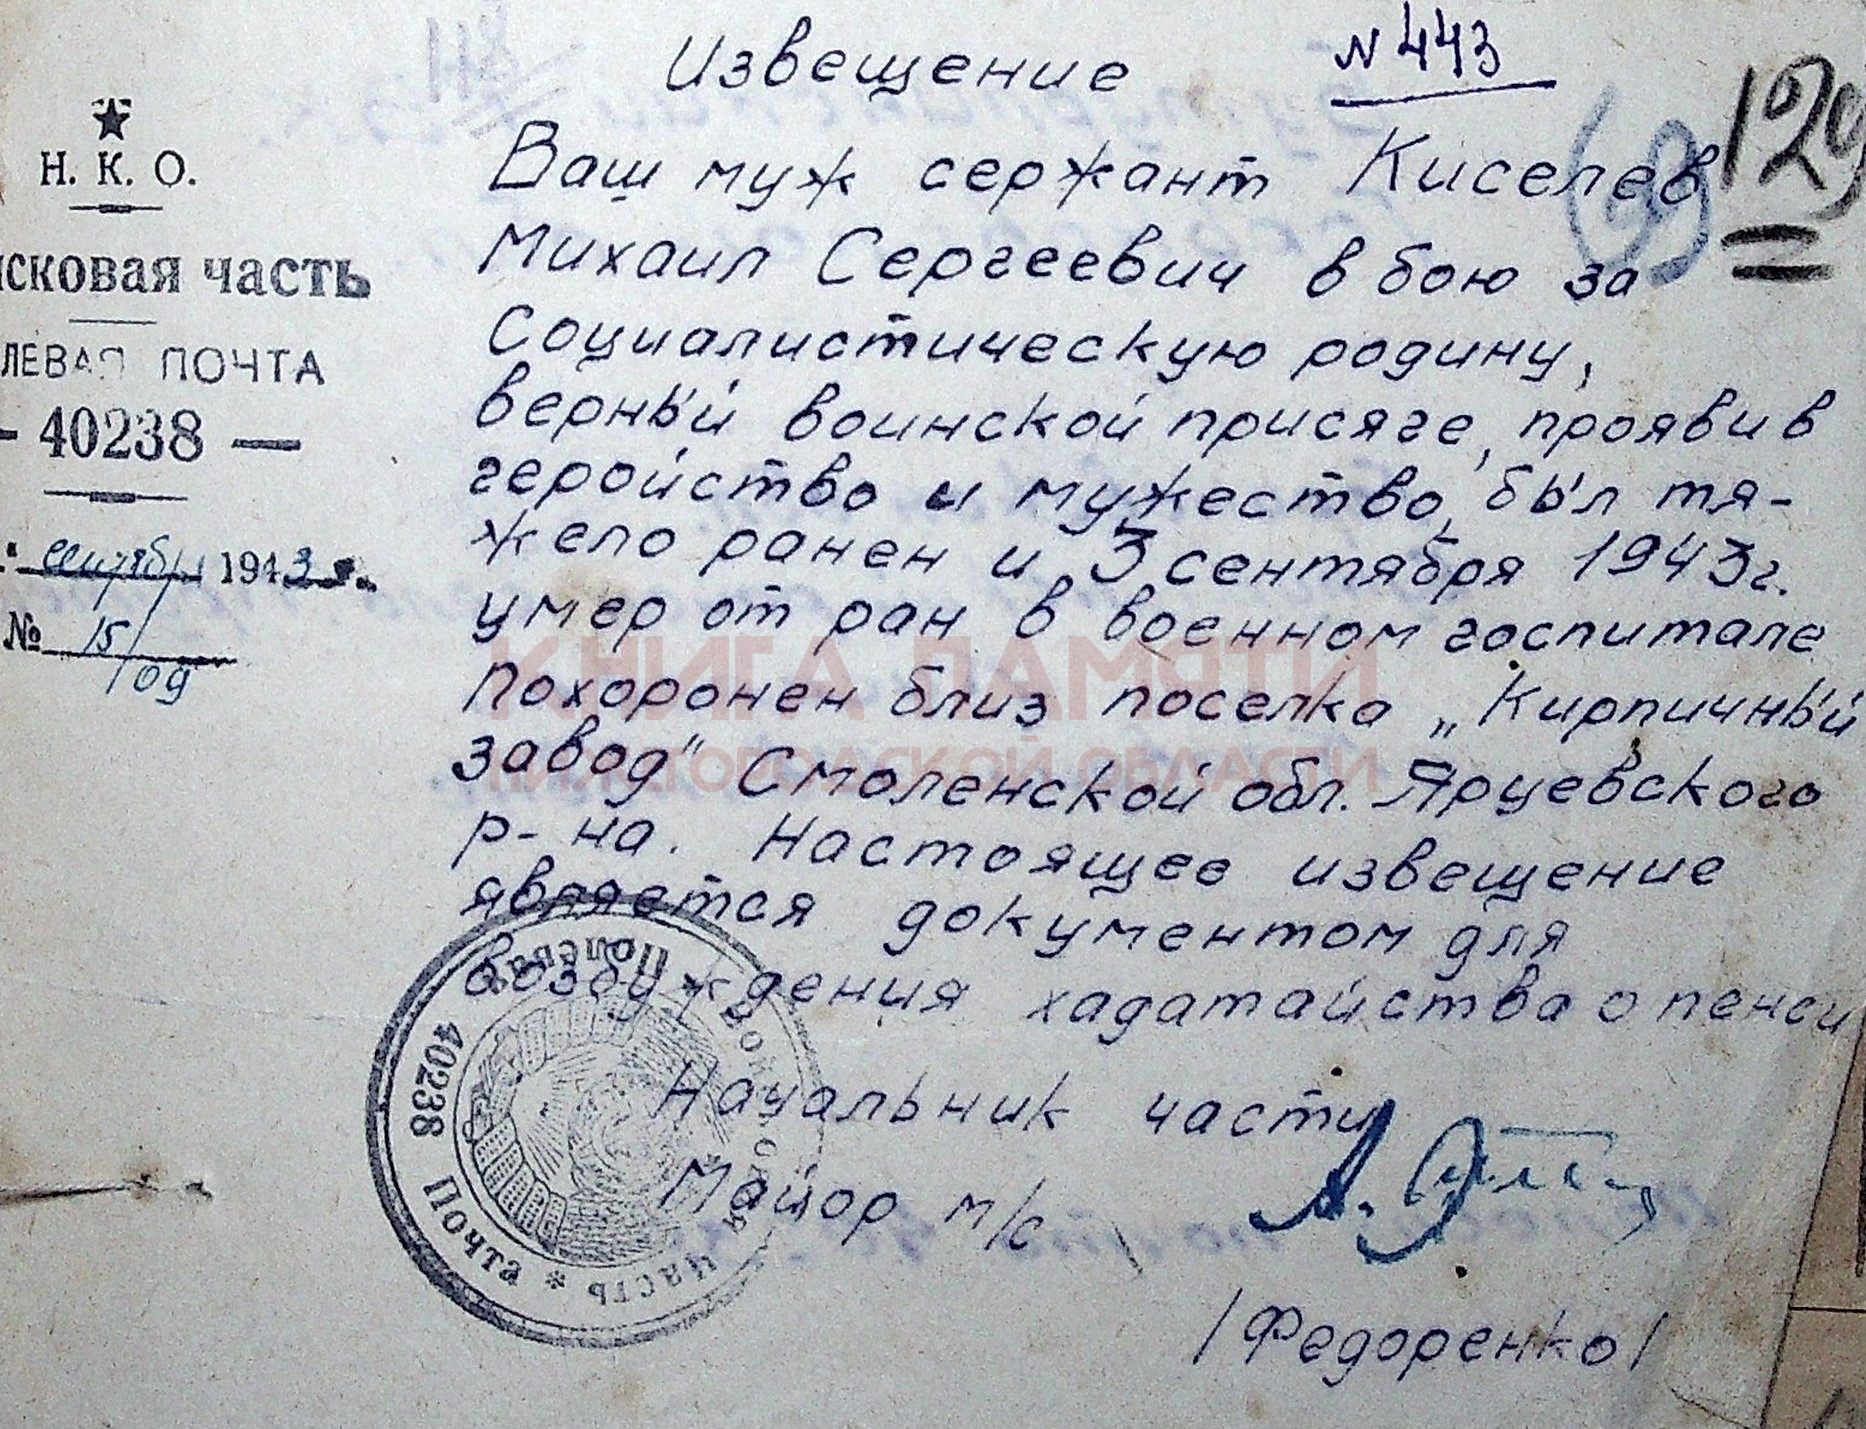 Извещение
N 443
129
Н. К. О.
сковая часть
ЛЕВАЯ ПОЧТА
— 40238 —
сентября 1943 г.
№ 15/09
Ваш муж сержант Киселев
Михаил Сергеевич в бою за
Социалистическую родину,
верный воинской присяге, проявив
геройство и мужество, был тя-
жело ранен и 3 сентября 1943г.
умер от ран в военном госпитале
Похоронен близ поселка „Кирпичный
завод" Смоленской обл. Ярцевского
р-на. Настоящее извещение
является документом для
возбуждения хадатайства о пенси
Начальник части
Майор м/с
/Федоренко/
Полевая Почта 40238 * Войсковая часть *
КНИГА ПАМЯТИ
НИЖЕГОРОДСКОЙ ОБЛАСТИ